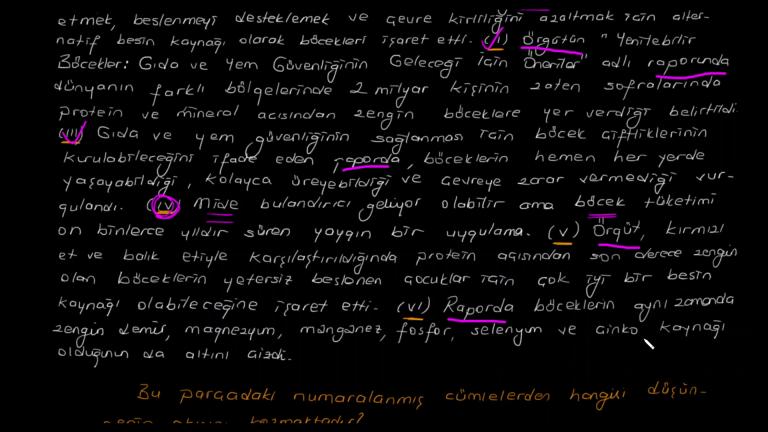 etmek, beslenmeyi desteklemek ve çevre kirliliğini azaltmak için alter-
natif besin kaynağı olarak böcekleri işaret etti. (II) Örgütün "Yenilebilir
Böcekler: Gıda ve Yem Güvenliğinin Geleceği İçin Öneriler" adlı raporunda
dünyanın farklı bölgelerinde 2 milyar kişinin zaten sofralarında
protein ve mineral açısından zengin böceklere yer verdiği belirtildi.
(III) Gıda ve yem güvenliğinin sağlanması için böcek çiftliklerinin
kurulabileceğini ifade eden raporda, böceklerin hemen her yerde
yaşayabildiği, kolayca üreyebildiği ve çevreye zarar vermediği vur-
gulandı. (IV) Mide bulandırıcı geliyor olabilir ama böcek tüketimi
on binlerce yıldır süren yaygın bir uygulama. (V) Örgüt, kırmızı
et ve balık etiyle karşılaştırıldığında protein açısından son derece zengin
olan böceklerin yetersiz beslenen çocuklar için çok iyi bir besin
kaynağı olabileceğine işaret etti. (VI) Raporda böceklerin aynı zamanda
zengin demir, magnezyum, manganez, fosfor, selenyum ve çinko kaynağı
olduğunun da altını çizdi.
Bu parçadaki numaralanmış cümlelerden hangisi düşün-
cenin akışını bozmaktadır?